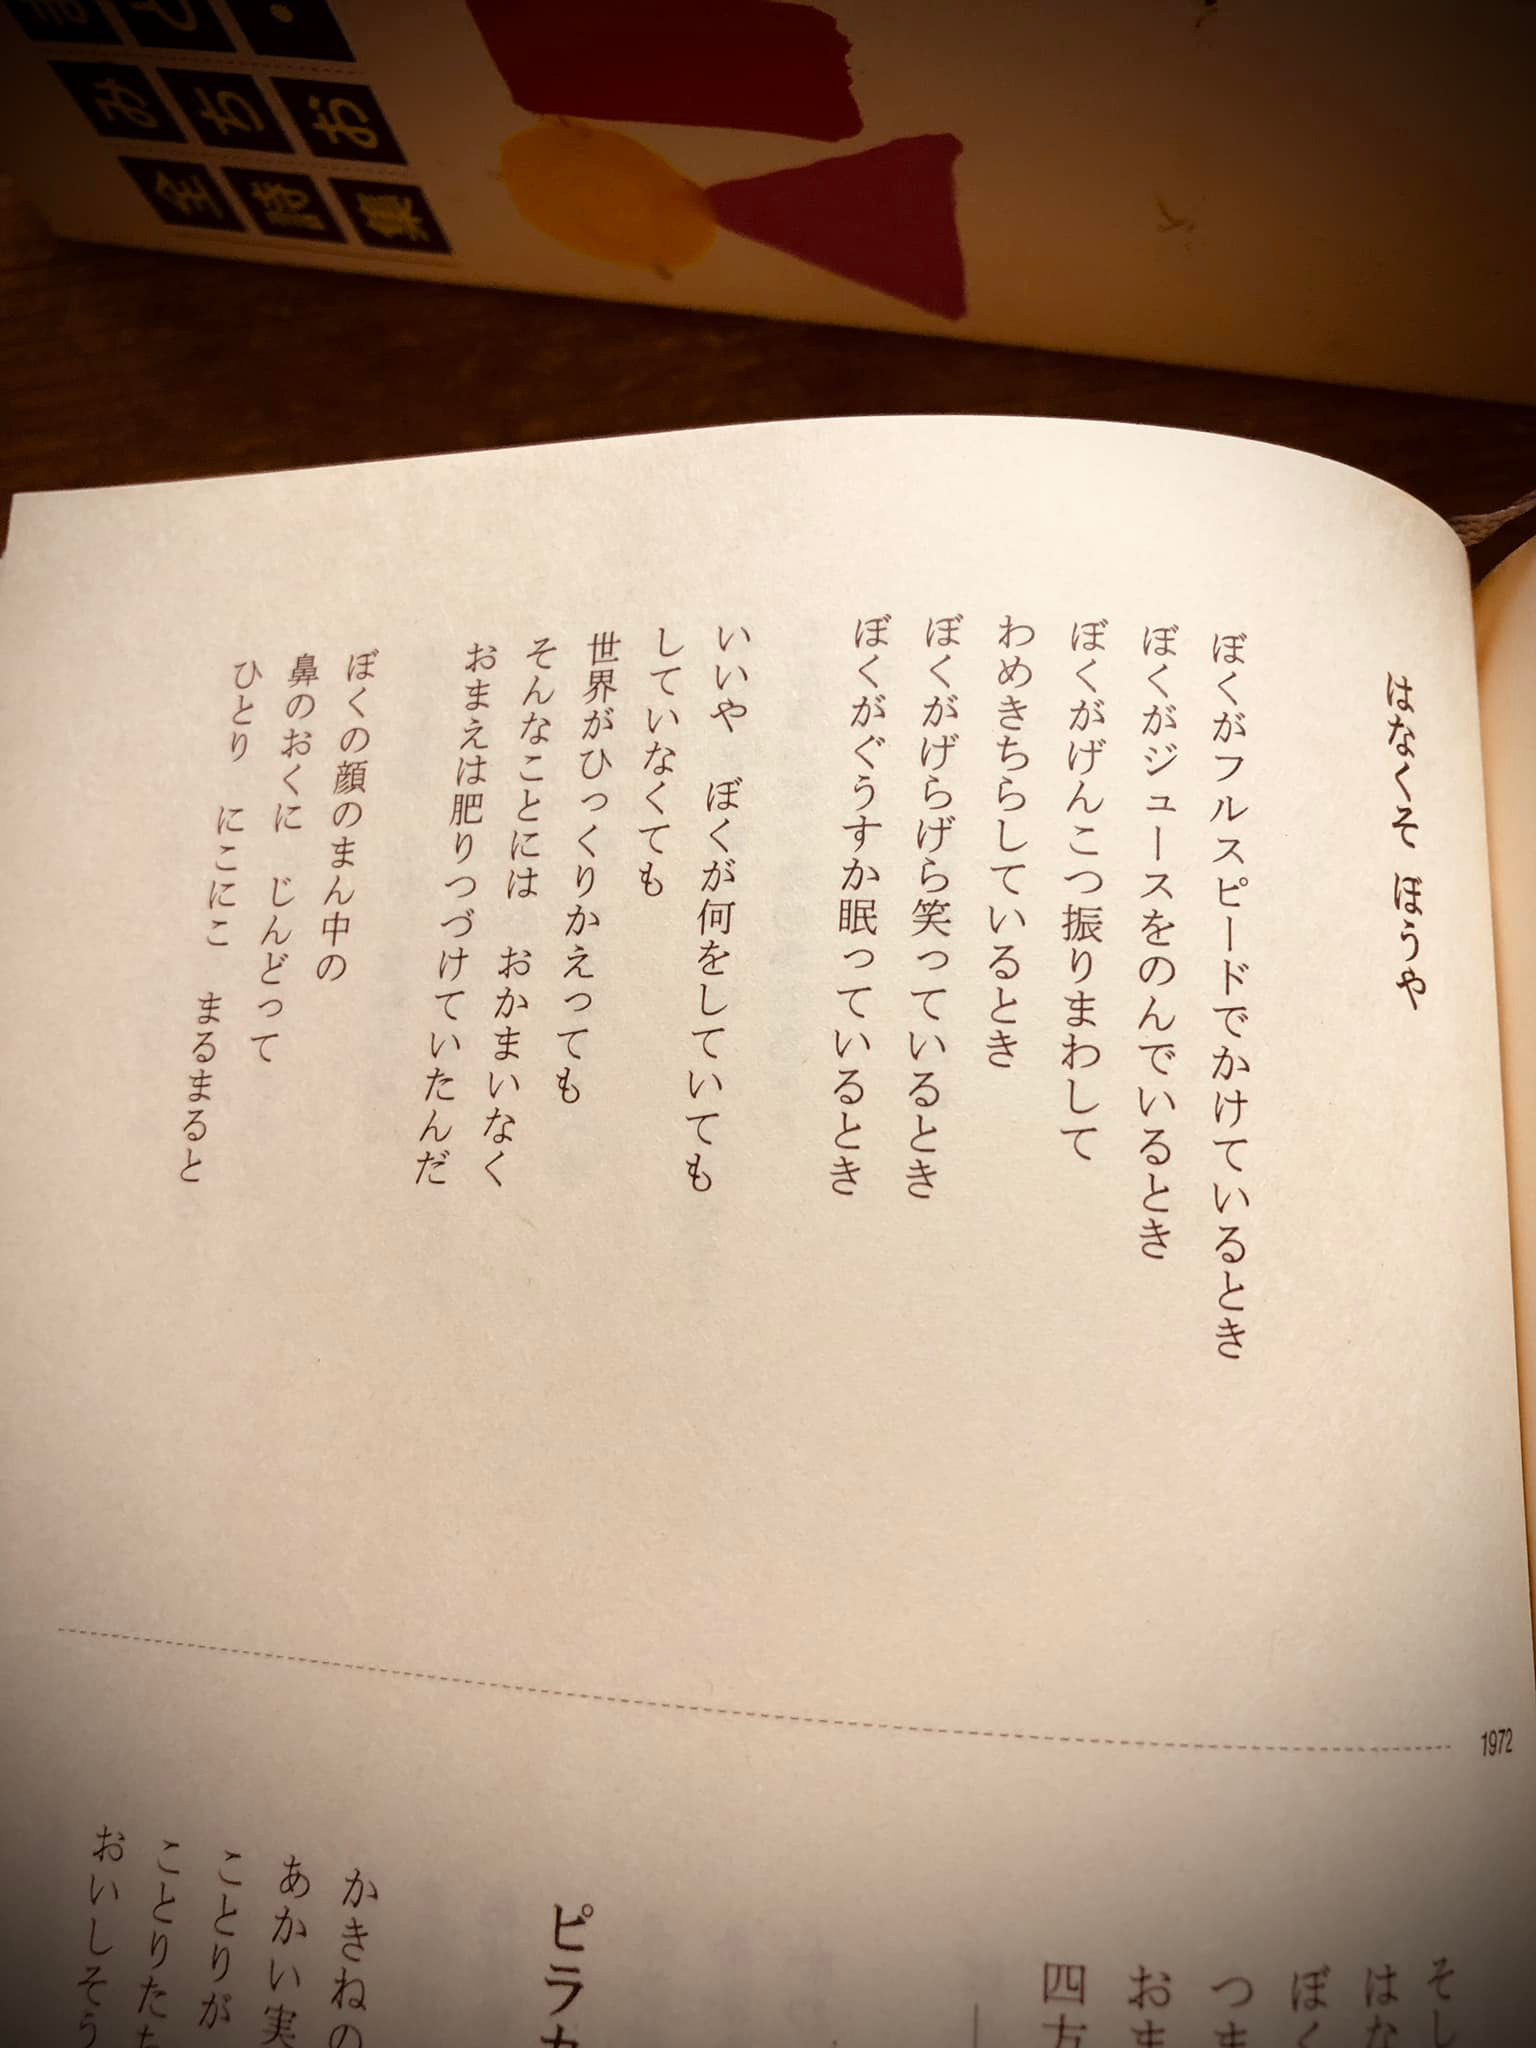 まど・
みちお
全詩集
はなくそ ぼうや
ぼくがフルスピードでかけているとき
ぼくがジュースをのんでいるとき
ぼくがげんこつ振りまわして
わめきちらしているとき
ぼくがげらげら笑っているとき
ぼくがぐうすか眠っているとき
いいや ぼくが何をしていても
していなくても
世界がひっくりかえっても
そんなことには おかまいなく
おまえは肥りつづけていたんだ
ぼくの顔のまん中の
鼻のおくに じんどって
ひとり にこにこ まるまると
1972
そし
はな
ぼく
つま
おま
四方
ピラカ
かきねの
あかい実
ことりが
ことりたち
おいしそう